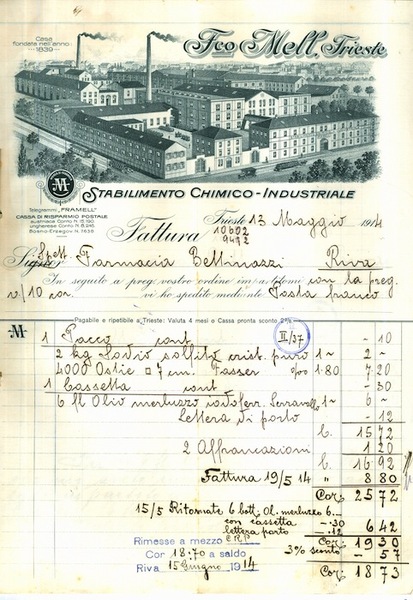 Casa
fondata nell'anno
1839
Fco Mell, Trieste
M
STABILIMENTO CHIMICO-INDUSTRIALE
Telegrammi "FRAMELL"
CASSA DI RISPARMIO POSTALE
austriaca Conto N.
ungherese Conto N.
Bosno-Erzegov. N. 7638
Trieste 13 Maggio 1914
Fattura 10602
9492
Spett. Farmacia Bettinazzi Riva
In seguito a preg. vostro ordine con la preg.
v/10 cor. vi ho spedito mediante Posta franco
Pagabile e ripetibile a Trieste: Valuta 4 mesi o Cassa pronta sconto 2%
M
II/37
1 Pacco cont - 10
2 kg Sodio solfito crist. puro 1~ 2 -
4000 Ostie 7 cm. Fasser o/oo 1·80 7 20
1 Cassetta cont - 30
6 fl Olio merluzzo iodoferr. Serravallo 1~ 6 -
Lettera di porto - 12
C. 15 72
2 Affrancazioni 1 20
C. 16 92
Fattura 19/5 14 " 8 80
Cor. 25 72
15/5 Ritornate 6 bott. Ol. merluzzo 6.—
con cassetta -.30
lettera porto -.12 6 42
Rimesse a mezzo C.R.P Cor. 19 30
Cor 18.70 a saldo 3% sconto - 57
Riva 15 Giugno 1914 Cor. 18 73